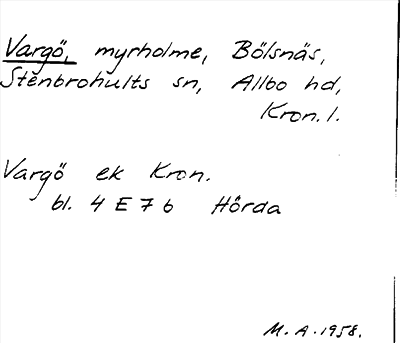 Vargö, myrholme, Bölsnäs,
Stenbrohults sn, Allbo hd,
Kron. l.
Vargö ek Kron.
bl. 4 E 7 b Hörda
M. A. 1958.